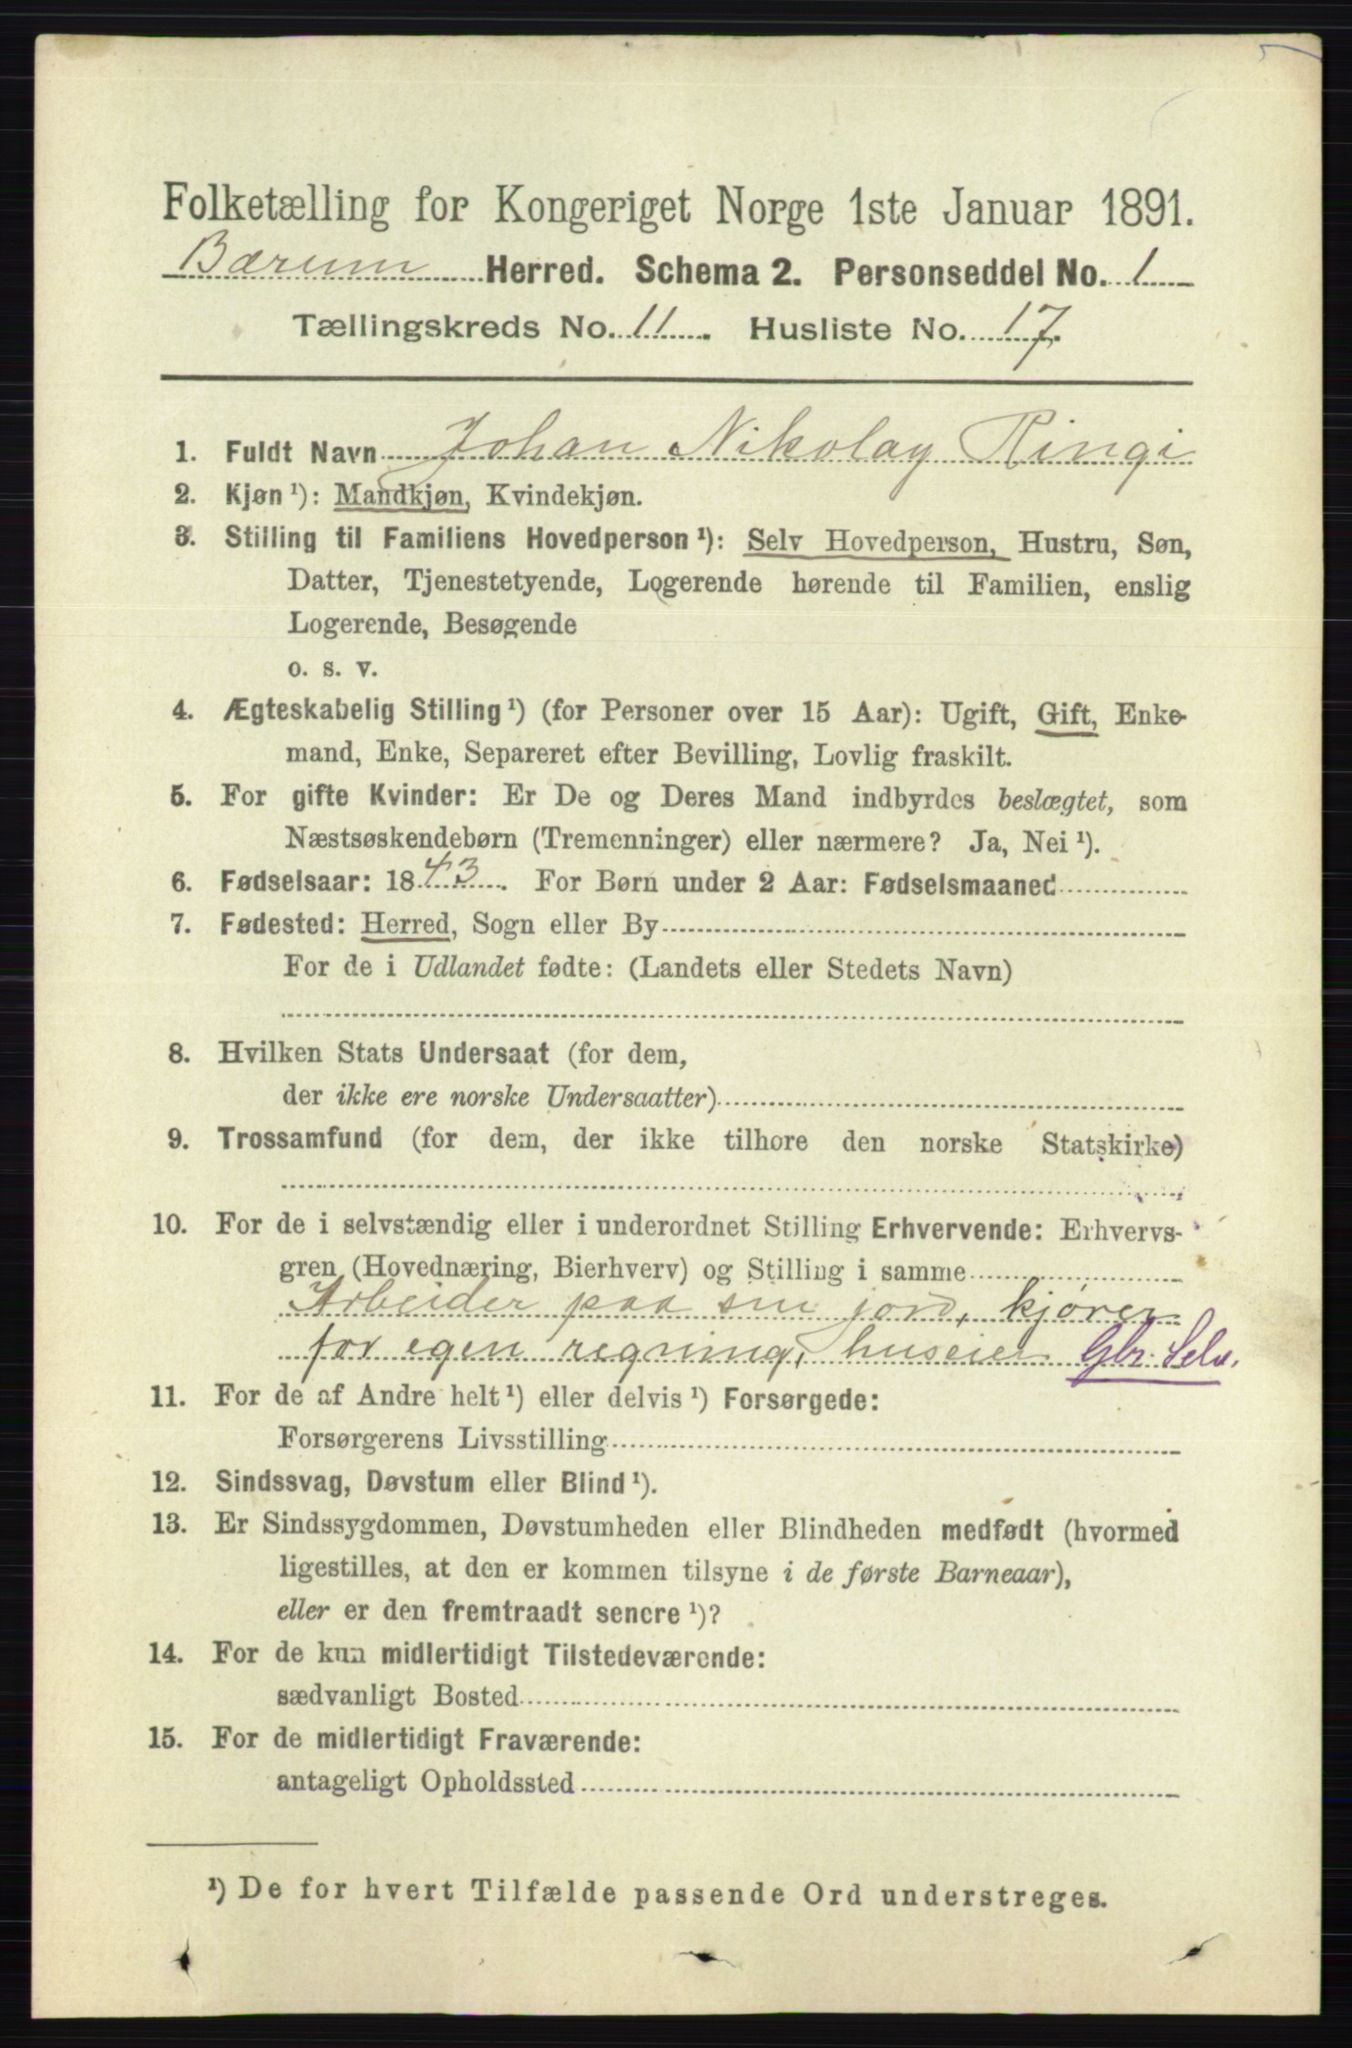 Folketælling for Kongeriget Norge 1ste Januar 1891.
Bærum Herred. Schema 2. Personseddel No. 1
Tællingskreds No. 11. Husliste No. 17.
1. Fuldt Navn Johan Nikolay Ringi
2. Kjøn ¹): Mandkjøn, Kvindekjøn.
3. Stilling til Familiens Hovedperson ¹): Selv Hovedperson, Hustru, Søn,
Datter, Tjenestetyende, Logerende hørende til Familien, enslig
Logerende, Besøgende
o. s. v.
4. Ægteskabelig Stilling ¹) (for Personer over 15 Aar): Ugift, Gift, Enke-
mand, Enke, Separeret efter Bevilling, Lovlig fraskilt.
5. For gifte Kvinder: Er De og Deres Mand indbyrdes beslægtet, som
Næstsøskendebørn (Tremenninger) eller nærmere? Ja, Nei ¹).
6. Fødselsaar: 1843. For Børn under 2 Aar: Fødselsmaaned
7. Fødested: Herred, Sogn eller By
For de i Udlandet fødte: (Landets eller Stedets Navn)
8. Hvilken Stats Undersaat (for dem,
der ikke ere norske Undersaatter)
9. Trossamfund (for dem, der ikke tilhøre den norske Statskirke)
10. For de i selvstændig eller i underordnet Stilling Erhvervende: Erhvervs-
gren (Hovednæring, Bierhverv) og Stilling i samme
Arbeider paa sin jord, kjører
for egen regning, huseier Gbr. Selv.
11. For de af Andre helt ¹) eller delvis ¹) Forsørgede:
Forsørgerens Livsstilling
12. Sindssvag, Døvstum eller Blind ¹).
13. Er Sindssygdommen, Døvstumheden eller Blindheden medfødt (hvormed
ligestilles, at den er kommen tilsyne i de første Barneaar),
eller er den fremtraadt senere ¹)?
14. For de kun midlertidigt Tilstedeværende:
sædvanligt Bosted
15. For de midlertidigt Fraværende:
antageligt Opholdssted
¹) De for hvert Tilfælde passende Ord understreges.